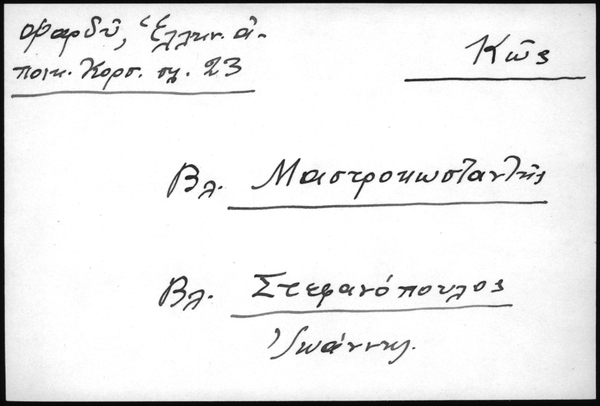 Φαρδῦ, Ἑλλην. ἀ-
ποικ. Κορσ. σελ. 23
Κῶς
Βλ. Μαστροκωσταντῆς
Βλ. Στεφανόπουλος
Ἰωάννης.